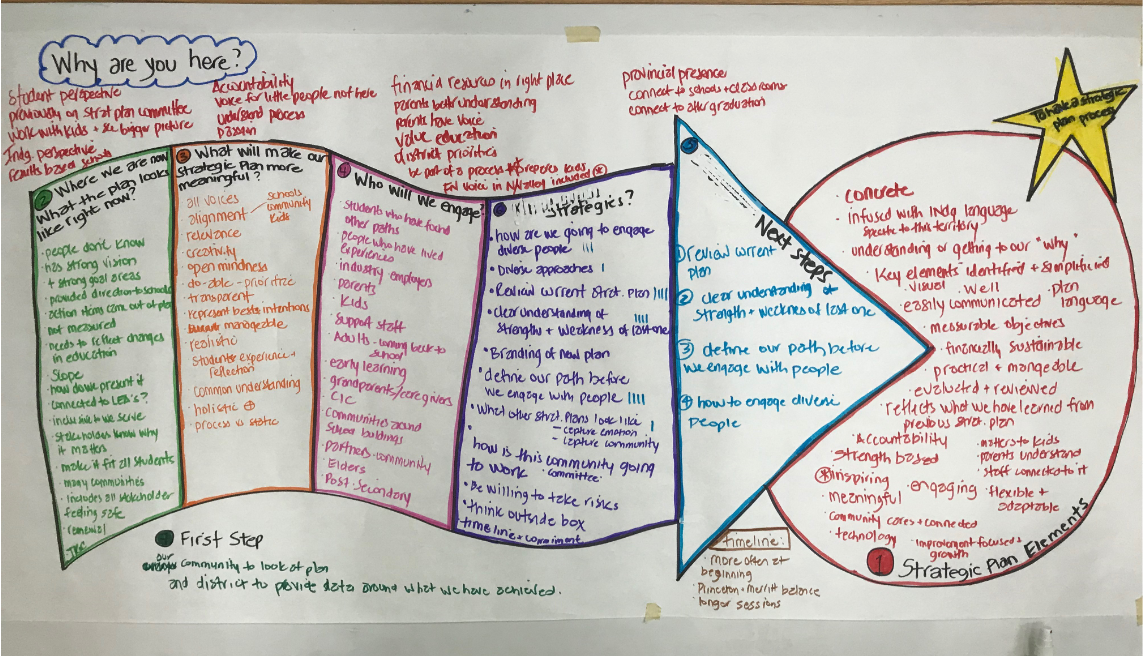 Why are you here?
Student perspective
previously on strat plan committee
Work with kids + see bigger picture
Indg. perspective
results based schools
Accountability
Voice for little people not here
understand process
passion
financial resources in right place
parents better understanding
parents have voice
value education
district priorities
be part of a process * prepares kids
FN voice in N Valley included *
provincial presence
connect to schools + classrooms
connect to after graduation
To have a strategic
plan process
2 Where we are now
What the plan looks
like right now?
· people don't know
· has strong vision
+ strong goal areas
· provided direction to schools
· action items came out of plan
not measured
· needs to reflect changes
in education
· Slope
· how do we present it
· connected to LEA's?
· inclusive we serve
· stakeholders know why
it matters
· make it fit all students
· many communities
· includes all stakeholder
· feeling safe
· renewal
3 What will make our
Strategic Plan more
meaningful?
· all voices
· alignment
schools
community
kids
· relevance
· creativity
· open mindness
· do-able - prioritize
· transparent
· represent bests intentions
· manageable
· realistic
· students experience +
reflection
· common understanding
· holistic +
· process vs static
4 Who will we engage?
· Students who have found
other paths
· people who have lived
experiences
· industry employers
· parents
· Kids
· Support staff
· Adults - coming back to
school
· early learning
· grandparents/caregivers
· CIC
· Communities around
School buildings
· partners - community
· Elders
· Post-Secondary
Strategies?
· how are we going to engage
diverse people III
· Diverse approaches I
· Review current strat. plan IIII
· clear understanding of IIII
strengths + weakness of last one
· Branding of new plan
· define our path before
we engage with people IIII
· What other strat. plans look like I
- capture emotion
- capture community
· how is this community going
to work · committee ·
· Be willing to take risks
· think outside box
· timeline + commitment
Next steps
1 review current
plan
2 clear understanding of
strength + weakness of last one
3 define our path before
we engage with people
4 how to engage diverse
people
· concrete
· infused with Indg language
specific to this territory
· understanding or getting to our "why"
· Key elements identified + simplified
· visual · well · plan
· easily communicated language
· measurable objectives
· financially sustainable
· practical + mangeable
· evaluated + reviewed
· Reflects what we have learned from
previous strat. plan
· Accountability
· strength based
· matters to kids
· parents understand
· staff connected to it
* inspiring
· meaningful
· engaging
· flexible +
adaptable
· community cares + connected
· technology
· improvement focused +
growth
1 Strategic Plan Elements
First Step
our
community to look at plan
and district to provide data around what we have achieved.
timeline:
· more often at
beginning
· Princeton + Merritt balance
· longer sessions